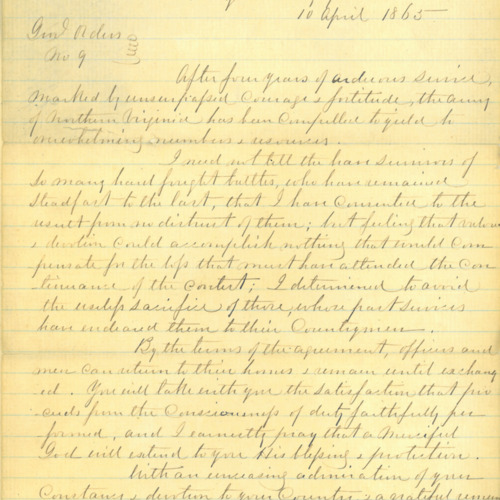 10 April 1865
Genl Orders
No 9
After four years of arduous service,
marked by unsurpassed courage & fortitude, the army
of Northern Virginia has been compelled to yield to
overwhelming numbers & resources.
I need not tell the brave survivors of
so many hard fought battles, who have remained
steadfast to the last, that I have consented to the
result from no distrust of them; but feeling that valour
& devotion could accomplish nothing that would com
pensate for the loss that must have attended the con
tinuance of the contest; I determined to avoid
the useless sacrifice of those, whose past services
have endeared them to their Countrymen.
By the terms of the agreement, officers and
men can return to their homes & remain until exchang
ed. You will take with you the satisfaction that pro
ceeds from the consciousness of duty faithfully per
formed, and I earnestly pray that a Merciful
God will extend to you His blessing & protection.
With an unceasing admiration of your
Constancy & devotion to your Country & a grateful